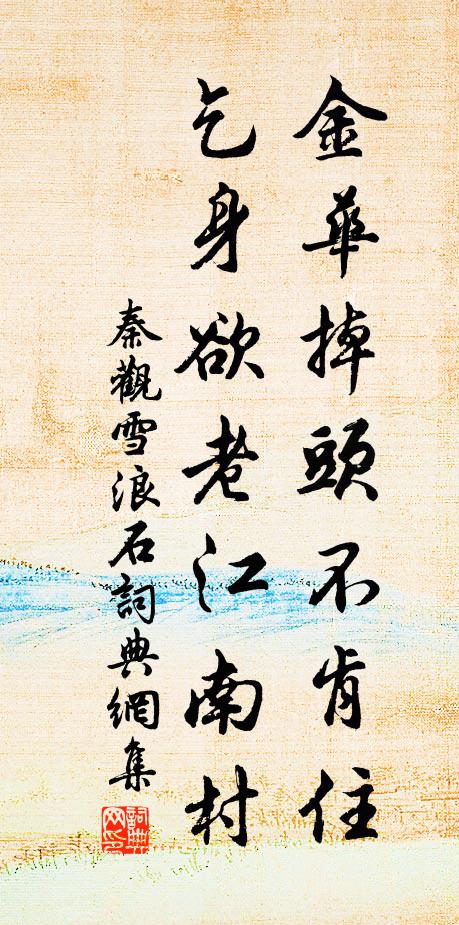 金華掉頭不肯住
乞身欲老江南村
秦觀雪浪石詞典網集